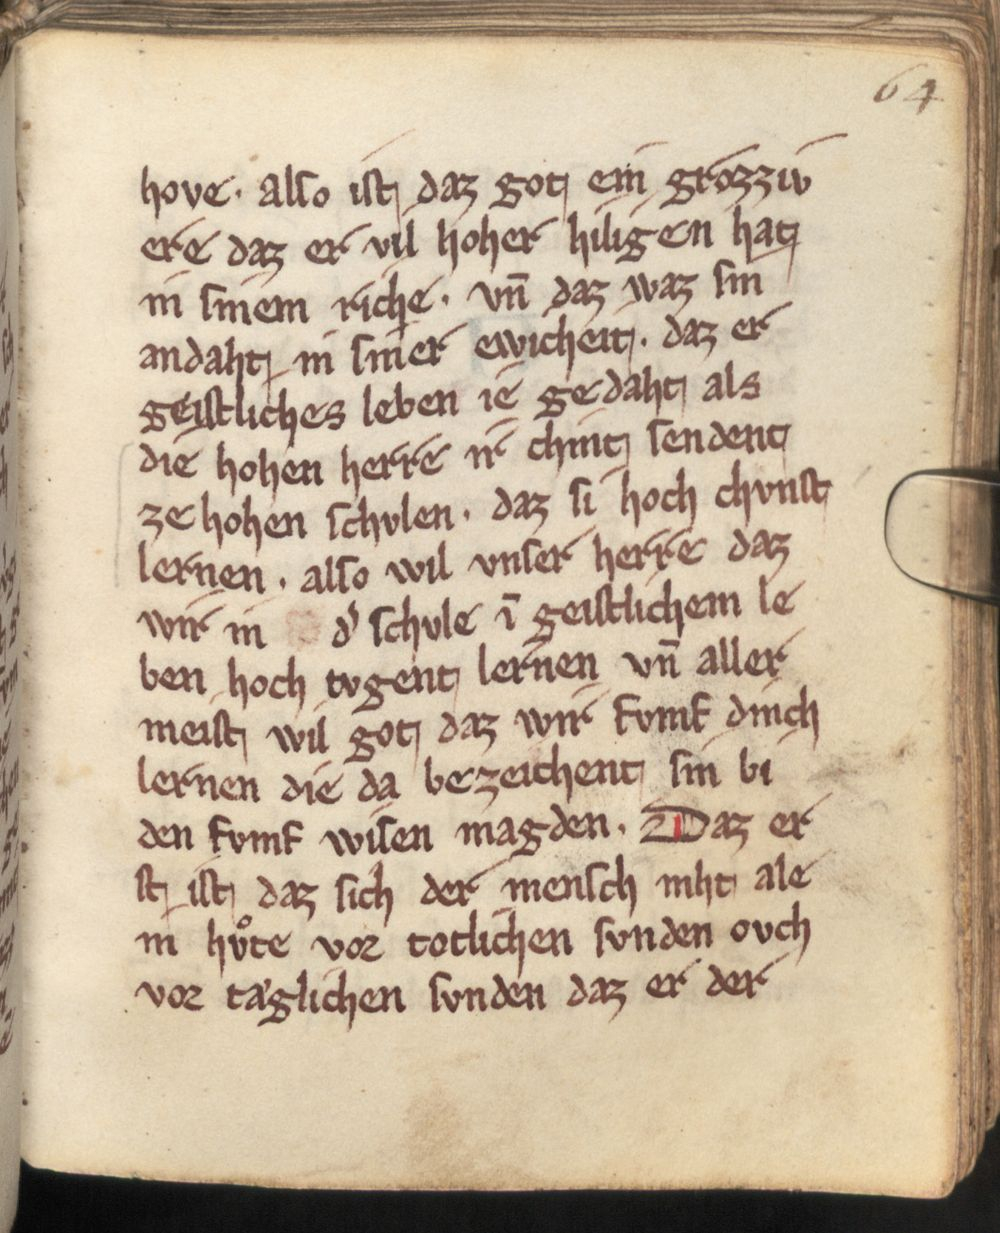 64
hove. also ist daz got ein grozziv
ere daz er vil hoher hiligen hat
in sinem riche. vn̄ daz waz sin
andaht in siner ewicheit. daz er
geistliches leben ie gedaht als
die hohen herre ir chint sendent
ze hohen schvlen. daz si hoch chvnst
lernen. also wil vnser herre daz
wir in d' schvle ī geistlichem le
ben hoch tvgent lernen vn̄ aller
meist wil got daz wir fvmf dinch
lernen die da bezeichent sin bi
den fvmf wisen magden. Daz er
st ist daz sich der mensch niht ale
in hvͦte vor totlichen svnden ovch
vor taglichen svnden daz er der